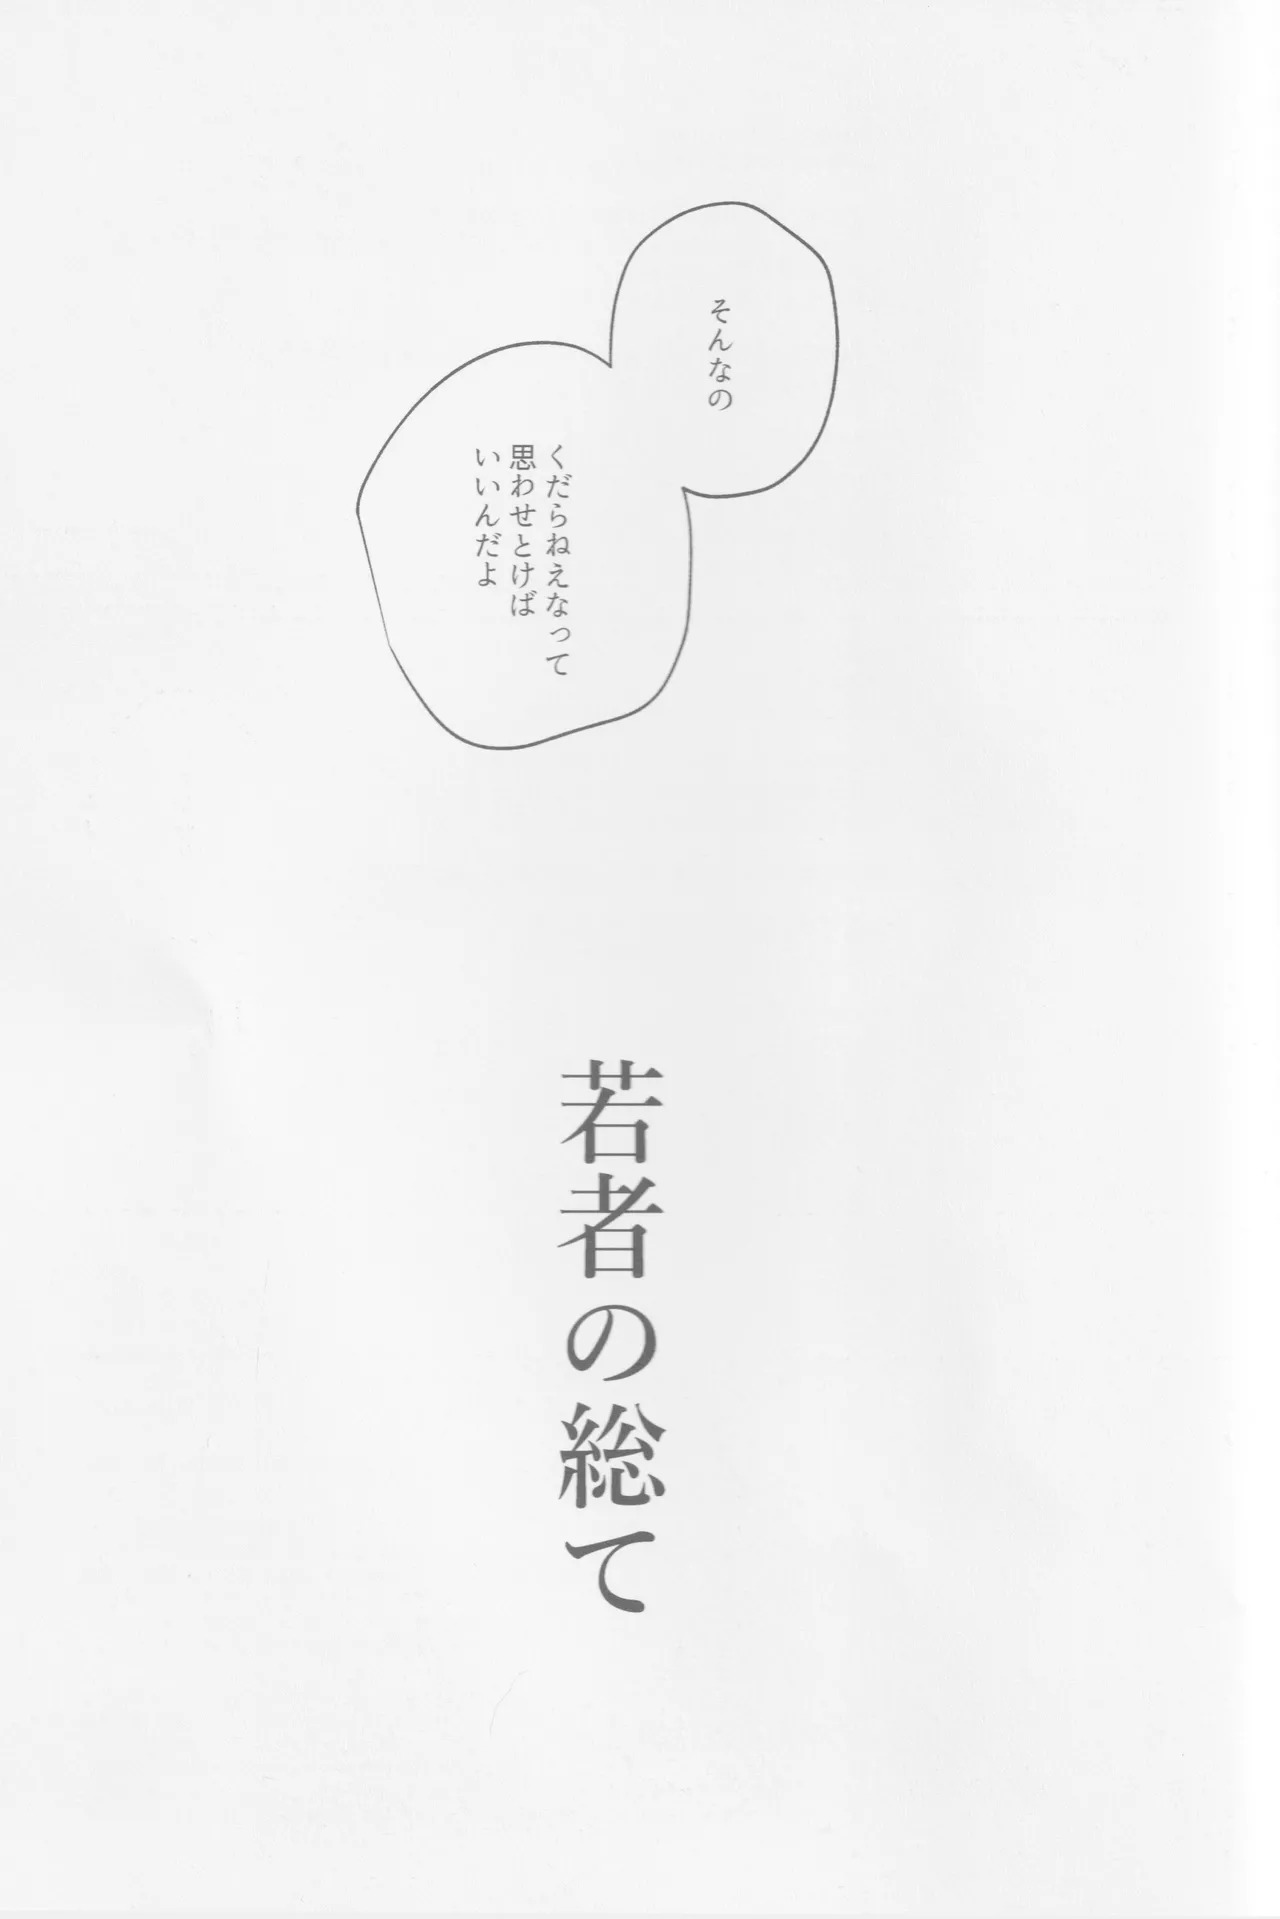 そんなの
くだらねえなって
思わせとけば
いいんだよ
若者の総て